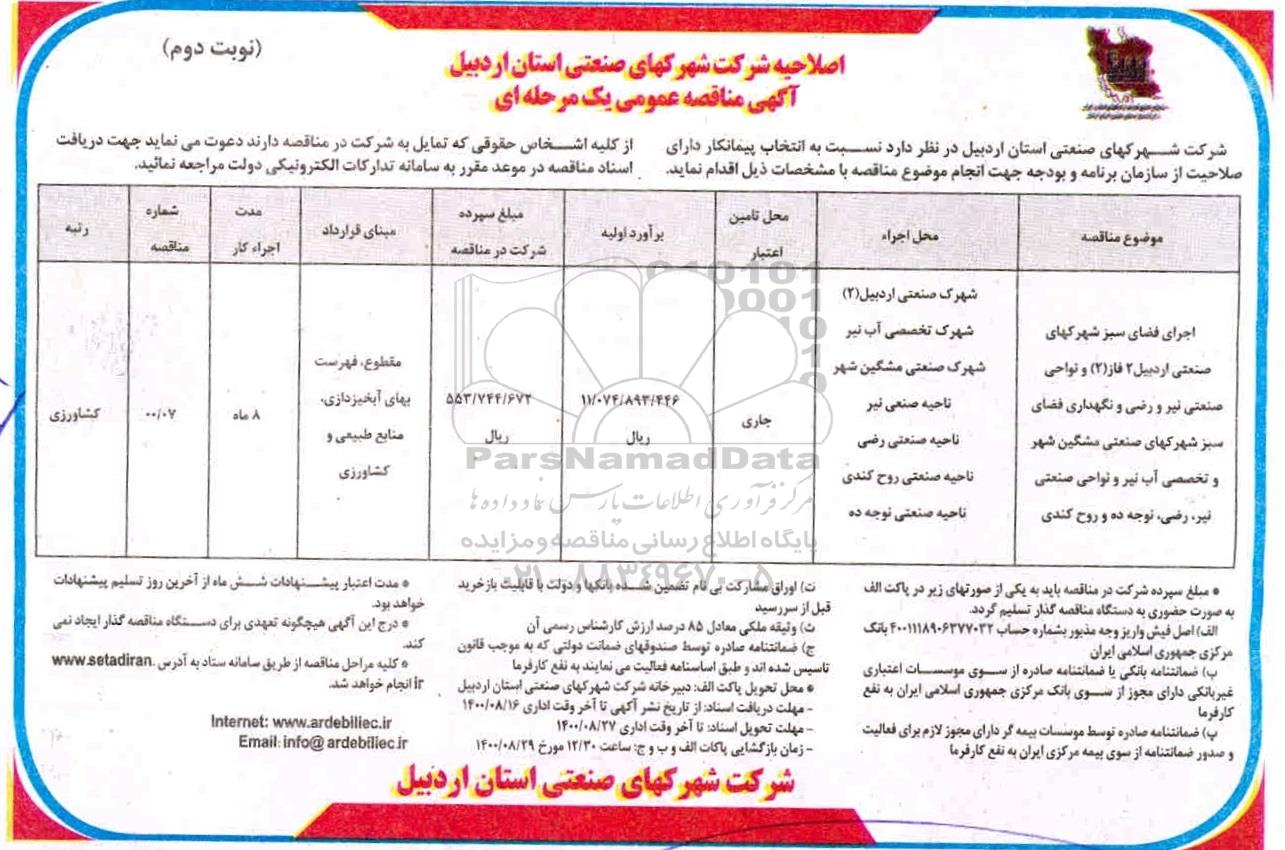 (نوبت دوم)
اصلاحیه شرکت شهرکهای صنعتی استان اردبیل
آگهی مناقصه عمومی یک مرحله ای
شرکت شهرکهای صنعتی استان اردبیل در نظر دارد نسبت به انتخاب پیمانکار دارای
صلاحیت از سازمان برنامه و بودجه جهت انجام موضوع مناقصه با مشخصات ذیل اقدام نماید.
از کلیه اشخاص حقوقی که تمایل به شرکت در مناقصه دارند دعوت می نماید جهت دریافت
اسناد مناقصه در موعد مقرر به سامانه تدارکات الکترونیکی دولت مراجعه نمائید.
موضوع مناقصه
محل اجراء
محل تامین
اعتبار
برآورد اولیه
مبلغ سپرده
شرکت در مناقصه
مبنای قرارداد
مدت
اجراء کار
شماره
مناقصه
رتبه
اجرای فضای سبز شهرکهای
صنعتی اردبیل۲ فاز(۲) و نواحی
صنعتی نیر و رضی و نگهداری فضای
سبز شهرکهای صنعتی مشگین شهر
و تخصصی آب نیر و نواحی صنعتی
نیر، رضی، نوجه ده و روح کندی
شهرک صنعتی اردبیل(۲)
شهرک تخصصی آب نیر
شهرک صنعتی مشگین شهر
ناحیه صنعی نیر
ناحیه صنعتی رضی
ناحیه صنعتی روح کندی
ناحیه صنعتی نوجه ده
جاری
۱۱/۰۷۴/۸۹۳/۴۴۶
ریال
۵۵۳/۷۴۴/۶۷۲
ریال
مقطوع، فهرست
بهای آبخیزداری،
منابع طبیعی و
کشاورزی
۸ ماه
۰۰/۰۷
کشاورزی
ParsNamadData
مرکز فرآوری اطلاعات پارس نماد داده ها
پایگاه اطلاع رسانی مناقصه و مزایده
۰۲۱-۸۸۳۴۹۶۷۰-۵
* مبلغ سپرده شرکت در مناقصه باید به یکی از صورتهای زیر در پاکت الف
به صورت حضوری به دستگاه مناقصه گذار تسلیم گردد.
الف) اصل فیش واریز وجه مذبور بشماره حساب ۴۰۰۱۱۱۸۹۰۶۳۷۷۰۳۲ بانک
مرکزی جمهوری اسلامی ایران
ب) ضمانتنامه بانکی یا ضمانتنامه صادره از سوی موسسات اعتباری
غیربانکی دارای مجوز از سوی بانک مرکزی جمهوری اسلامی ایران به نفع
کارفرما
پ) ضمانتنامه صادره توسط موسسات بیمه گر دارای مجوز لازم برای فعالیت
و صدور ضمانتنامه از سوی بیمه مرکزی ایران به نفع کارفرما
ت) اوراق مشارکت بی نام تضمین شده بانکها و دولت با قابلیت بازخرید
قبل از سررسید
ث) وثیقه ملکی معادل ۸۵ درصد ارزش کارشناس رسمی آن
ج) ضمانتنامه صادره توسط صندوقهای ضمانت دولتی که به موجب قانون
تاسیس شده اند و طبق اساسنامه فعالیت می نمایند به نفع کارفرما
* محل تحویل پاکت الف: دبیرخانه شرکت شهرکهای صنعتی استان اردبیل
- مهلت دریافت اسناد: از تاریخ نشر آگهی تا آخر وقت اداری ۱۴۰۰/۰۸/۱۶
- مهلت تحویل اسناد: تا آخر وقت اداری ۱۴۰۰/۰۸/۲۷
- زمان بازگشایی پاکات الف و ب و ج: ساعت ۱۲/۳۰ مورخ ۱۴۰۰/۰۸/۲۹
* مدت اعتبار پیشنهادات شش ماه از آخرین روز تسلیم پیشنهادات
خواهد بود.
* درج این آگهی هیچگونه تعهدی برای دستگاه مناقصه گذار ایجاد نمی
کند.
* کلیه مراحل مناقصه از طریق سامانه ستاد به آدرس www.setadiran.
ir انجام خواهد شد.
Internet: www.ardebiliec.ir
Email: info@ardebiliec.ir
شرکت شهرکهای صنعتی استان اردبیل